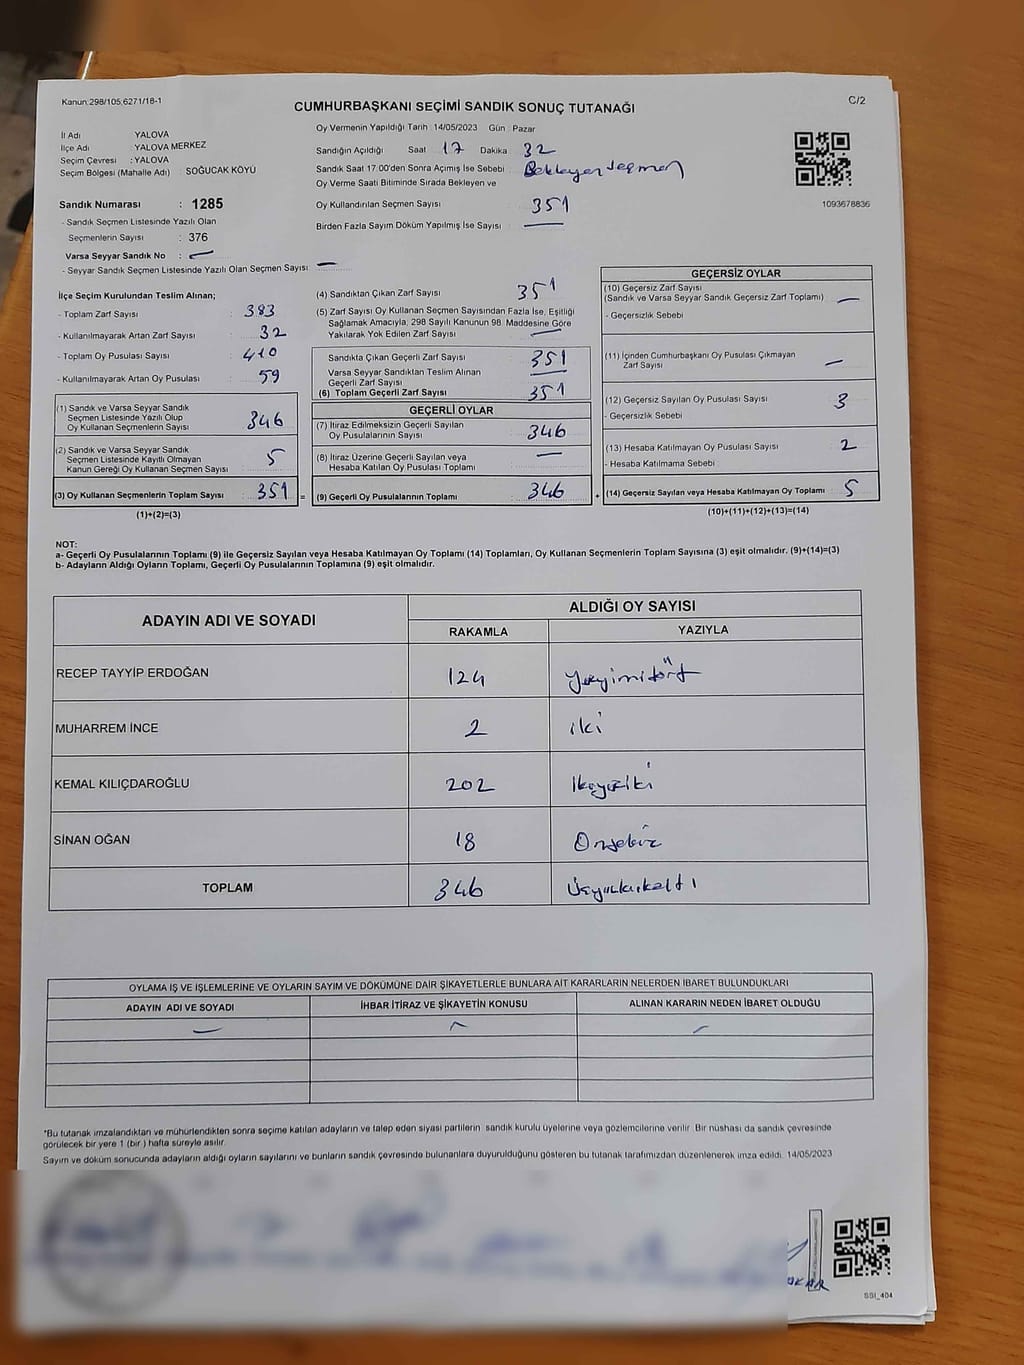 Kanun:298/105,6271/18-1
CUMHURBAŞKANI SEÇİMİ SANDIK SONUÇ TUTANAĞI
C/2
İl Adı YALOVA
İlçe Adı : YALOVA MERKEZ
Seçim Çevresi : YALOVA
Seçim Bölgesi (Mahalle Adı) : SOĞUCAK KÖYÜ
Sandık Numarası : 1285
- Sandık Seçmen Listesinde Yazılı Olan
Seçmenlerin Sayısı : 376
Varsa Seyyar Sandık No : —
- Seyyar Sandık Seçmen Listesinde Yazılı Olan Seçmen Sayısı : —
Oy Vermenin Yapıldığı Tarih : 14/05/2023 Gün : Pazar
Sandığın Açıldığı Saat 17 Dakika 32
Sandık Saat 17.00'den Sonra Açımış İse Sebebi : Bekleyen seçmen
Oy Verme Saati Bitiminde Sırada Bekleyen ve
Oy Kullandırılan Seçmen Sayısı 351
Birden Fazla Sayım Döküm Yapılmış İse Sayısı : —
1093678836
İlçe Seçim Kurulundan Teslim Alınan;
- Toplam Zarf Sayısı : 383
- Kullanılmayarak Artan Zarf Sayısı : 32
- Toplam Oy Pusulası Sayısı : 410
- Kullanılmayarak Artan Oy Pusulası : 59
(1) Sandık ve Varsa Seyyar Sandık
Seçmen Listesinde Yazılı Olup
Oy Kullanan Seçmenlerin Sayısı 346
(2) Sandık ve Varsa Seyyar Sandık
Seçmen Listesinde Kayıtlı Olmayan
Kanun Gereği Oy Kullanan Seçmen Sayısı 5
(3) Oy Kullanan Seçmenlerin Toplam Sayısı 351 =
(1)+(2)=(3)
(4) Sandıktan Çıkan Zarf Sayısı 351
(5) Zarf Sayısı Oy Kullanan Seçmen Sayısından Fazla İse, Eşitliği
Sağlamak Amacıyla, 298 Sayılı Kanunun 98. Maddesine Göre
Yakılarak Yok Edilen Zarf Sayısı : —
Sandıkla Çıkan Geçerli Zarf Sayısı 351
Varsa Seyyar Sandıktan Teslim Alınan
Geçerli Zarf Sayısı —
(6) Toplam Geçerli Zarf Sayısı 351
GEÇERLİ OYLAR
(7) İtiraz Edilmeksizin Geçerli Sayılan
Oy Pusulalarının Sayısı 346
(8) İtiraz Üzerine Geçerli Sayılan veya
Hesaba Katılan Oy Pusulası Toplamı —
(9) Geçerli Oy Pusulalarının Toplamı 346 +
GEÇERSİZ OYLAR
(10) Geçersiz Zarf Sayısı
(Sandık ve Varsa Seyyar Sandık Geçersiz Zarf Toplamı) —
- Geçersizlik Sebebi
(11) İçinden Cumhurbaşkanı Oy Pusulası Çıkmayan
Zarf Sayısı —
(12) Geçersiz Sayılan Oy Pusulası Sayısı 3
- Geçersizlik Sebebi
(13) Hesaba Katılmayan Oy Pusulası Sayısı 2
- Hesaba Katılmama Sebebi
(14) Geçersiz Sayılan veya Hesaba Katılmayan Oy Toplamı 5
(10)+(11)+(12)+(13)=(14)
NOT:
a- Geçerli Oy Pusulalarının Toplamı (9) ile Geçersiz Sayılan veya Hesaba Katılmayan Oy Toplamı (14) Toplamları, Oy Kullanan Seçmenlerin Toplam Sayısına (3) eşit olmalıdır. (9)+(14)=(3)
b- Adayların Aldığı Oyların Toplamı, Geçerli Oy Pusulalarının Toplamına (9) eşit olmalıdır.
ADAYIN ADI VE SOYADI ALDIĞI OY SAYISI
RAKAMLA YAZIYLA
RECEP TAYYİP ERDOĞAN 124 Yüzyirmidört
MUHARREM İNCE 2 iki
KEMAL KILIÇDAROĞLU 202 İkiyüziki
SİNAN OĞAN 18 Onsekiz
TOPLAM 346 Üçyüzkırkaltı
OYLAMA İŞ VE İŞLEMLERİNE VE OYLARIN SAYIM VE DÖKÜMÜNE DAİR ŞİKAYETLERLE BUNLARA AİT KARARLARIN NELERDEN İBARET BULUNDUKLARI
ADAYIN ADI VE SOYADI İHBAR İTİRAZ VE ŞİKAYETİN KONUSU ALINAN KARARIN NEDEN İBARET OLDUĞU
*Bu tutanak imzalandıktan ve mühürlendikten sonra seçime katılan adayların ve talep eden siyasi partilerin sandık kurulu üyelerine veya gözlemcilerine verilir. Bir nüshası da sandık çevresinde
görülecek bir yere 1 (bir ) hafta süreyle asılır.
Sayım ve döküm sonucunda adayların aldığı oyların sayılarını ve bunların sandık çevresinde bulunanlara duyurulduğunu gösteren bu tutanak tarafımızdan düzenlenerek imza edildi. 14/05/2023
SSI_404